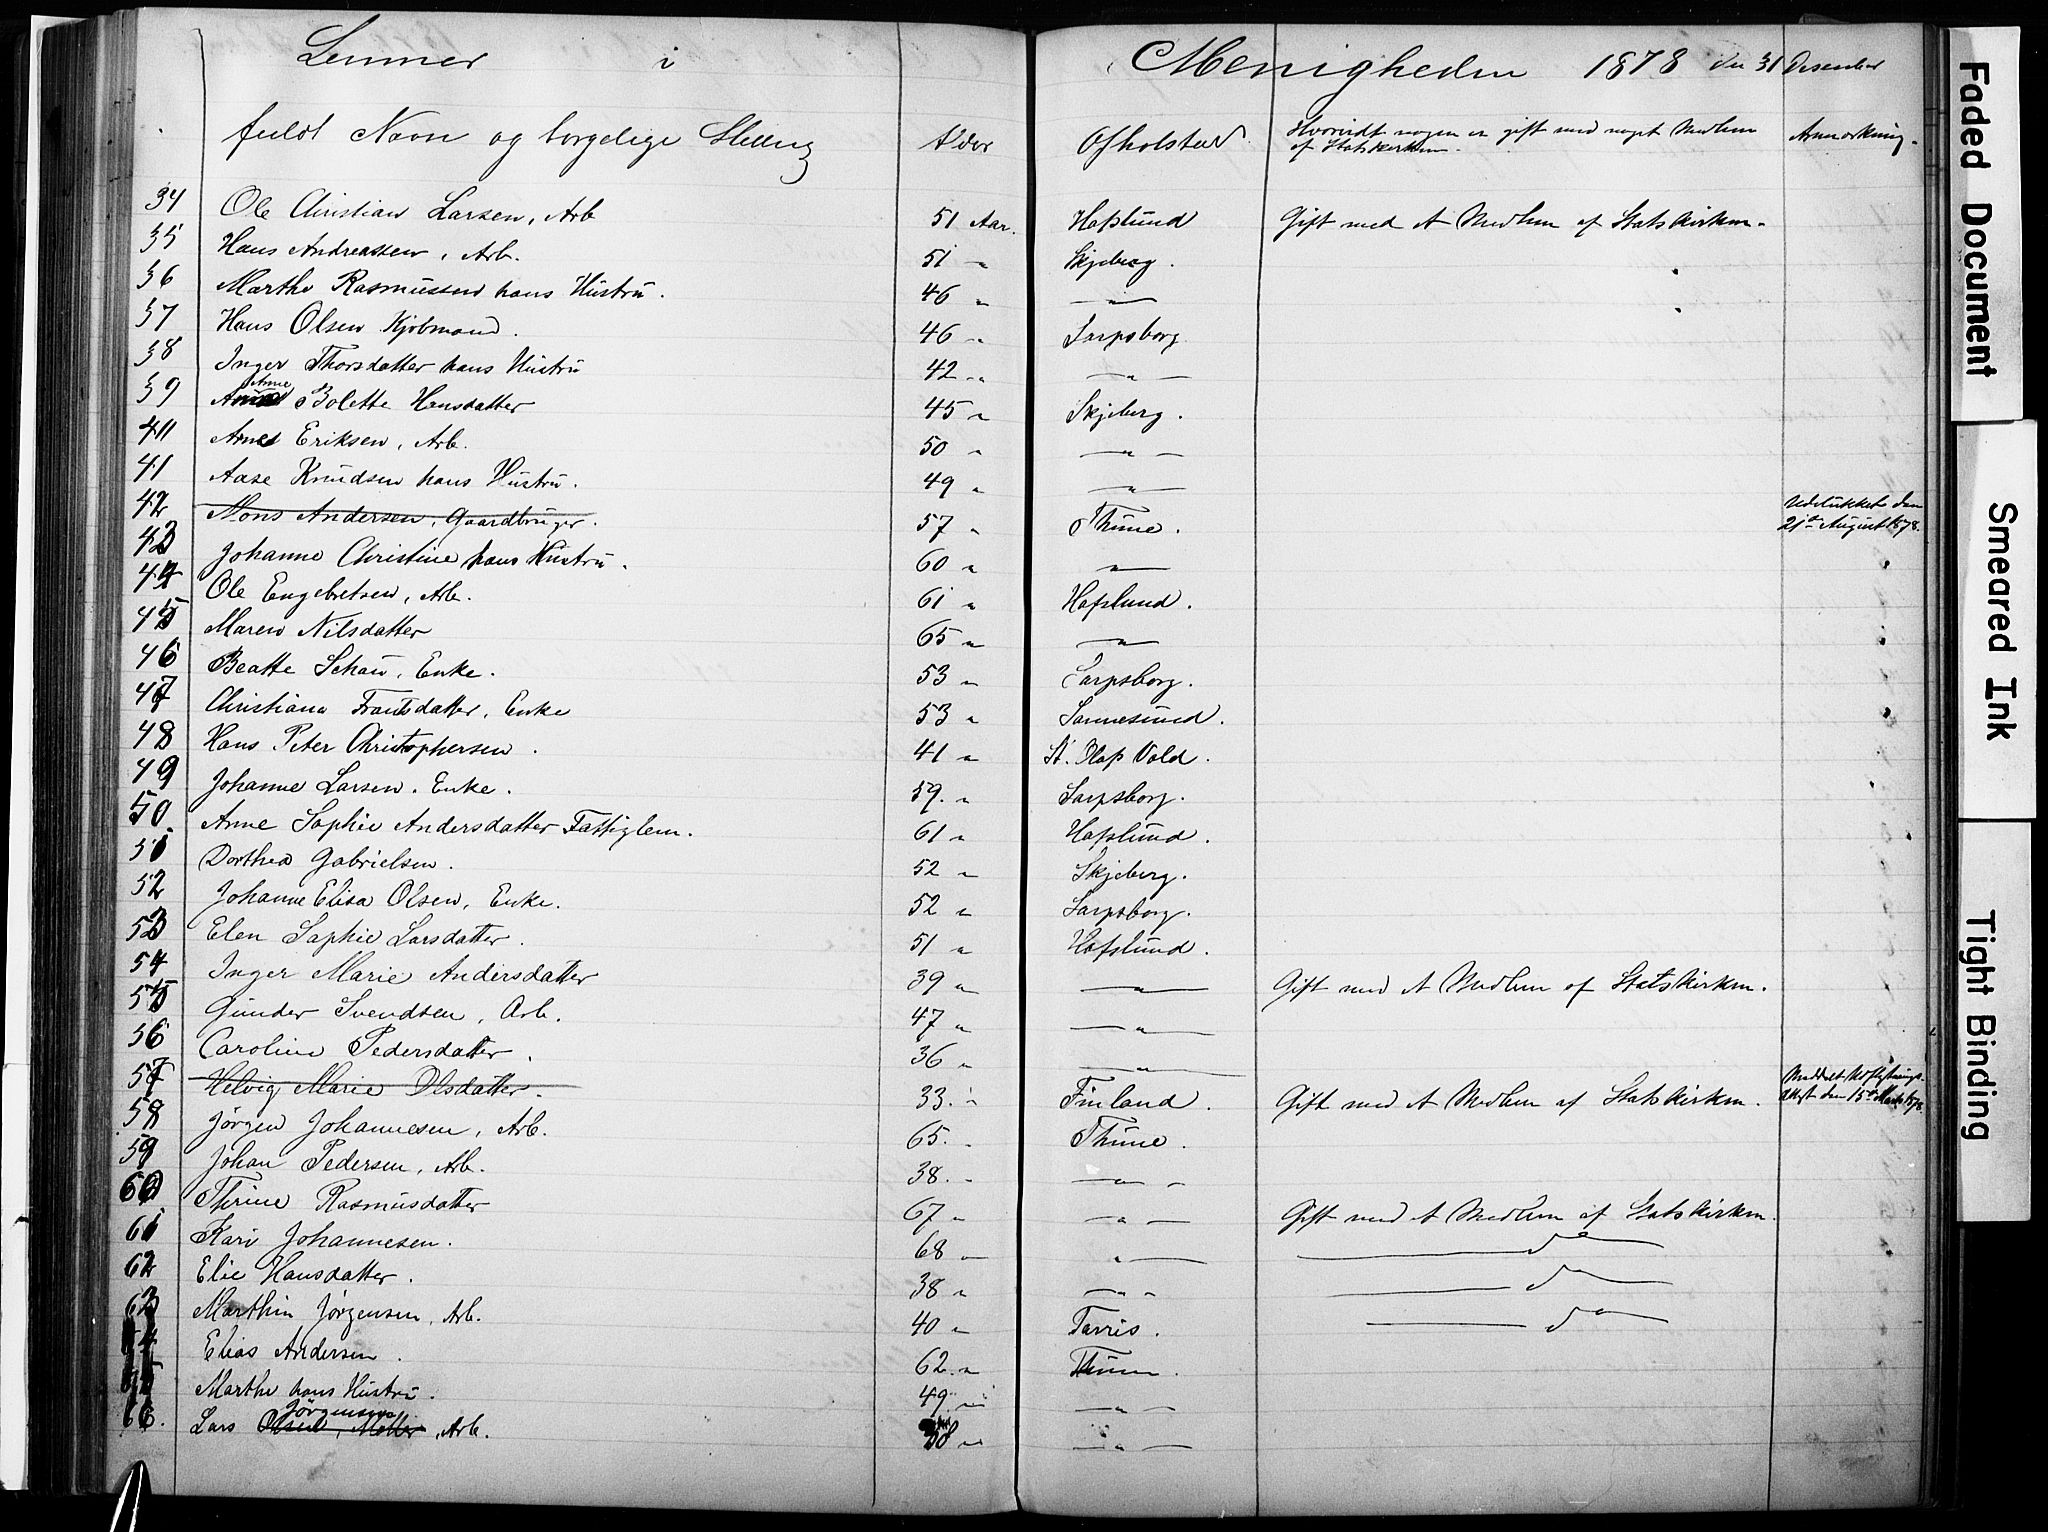 Lemmer i Menigheden 1878 den 31 Desember
fuldt Navn og borgelige Stilling Alder Opholsted Hvorvidt nogen er gift med noget Medlem Anmærkning.
af Statskirken.
34 Ole Christian Larsen, Arb 51 Aar. Hafslund Gift med et Medlem af Statskirken.
35 Hans Andreassen, Arb. 51 " Skjeberg.
36 Marthe Rasmussen hans Hustru. 46 " — " —
37 Hans Olsen Kjøbmand. 46 " Sarpsborg
38 Inger Thorsdatter hans Hustru 42 " — " —
39 Anne Bolette Hansdatter 45 " Skjeberg.
40 Arne Eriksen, Arb. 50 " — " —
41 Aase Knudsen hans Hustru. 49 " — " —
42 Mons Andersen, Gaardbruger. 57 " Thune. Udelukket den
21de August 1878.
43 Johanne Christine hans Hustru. 60 " — " —
44 Ole Engebretsen, Arb. 61 " Hafslund.
45 Maren Nilsdatter 65 " — " —
46 Beatte Schau, Enke. 53 " Sarpsborg.
47 Christiana Frantsdatter, Enke 53 " Sannesund.
48 Hans Peter Christophersen. 41 " St. Olaf Vold.
49 Johanne Larsen. Enke. 59. " Sarpsborg.
50 Anne Sophie Andersdatter Fattiglem. 61 " Hafslund.
51 Dorthea Gabrielsen. 52 " Skjeberg.
52 Johanne Elisa Olsen, Enke. 52 " Sarpsborg.
53 Elen Sophie Larsdatter. 51 " Hafslund.
54 Inger Marie Andersdatter 39 " — " — Gift med et Medlem af Statskirken.
55 Gunder Svendsen, Arb. 47 " — " —
56 Caroline Pedersdatter. 36 " — " —
57 Helvig Marie Olsdatter. 33. " Finland. Gift med et Medlem af Statskirken. Meddelt Udflytnings-
attest den 15de Marts 1878
58 Jørgen Johannesen, Arb. 65. " Thune.
59 Johan Pedersen, Arb. 38. " — " —
60 Thrine Rasmusdatter 67 " — " — Gift med et Medlem af Statskirken.
61 Kari Johannesen. 68 " " — — do —
62 Elie Hansdatter. 38 " — " — — do —
63 Marthin Jørgensen, Arb. 40 " Tarris. — do
64 Elias Andersen. 62. " Thune.
65 Marthe hans Hustru. 49. " — " —
Jørgensen
66. Lars Olsen, Møller, Arb. 58 " — " —
Faded Document
Smeared Ink
Tight Binding